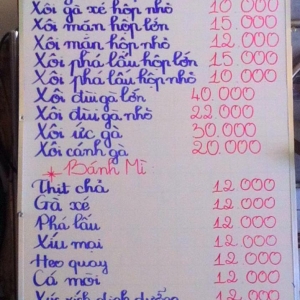 Xôi gà xé hộp nhỏ 10 000
Xôi mặn hộp lớn 15 000
Xôi mặn hộp nhỏ 12 000
Xôi phá lấu hộp lớn 15.000
Xôi phá lấu hộp nhỏ 10.000
Xôi đùi gà lớn 40.000
Xôi đùi gà nhỏ 22.000
Xôi ức gà 30.000
Xôi cánh gà 20.000
* Bánh Mì:
Thịt chả 12 000
Gà xé 12 000
Phá lấu 12 000
Xíu mại 12 000
Heo quay 12 000
Cá mòi 12 000
Xúc xích dinh dưỡng 12 000